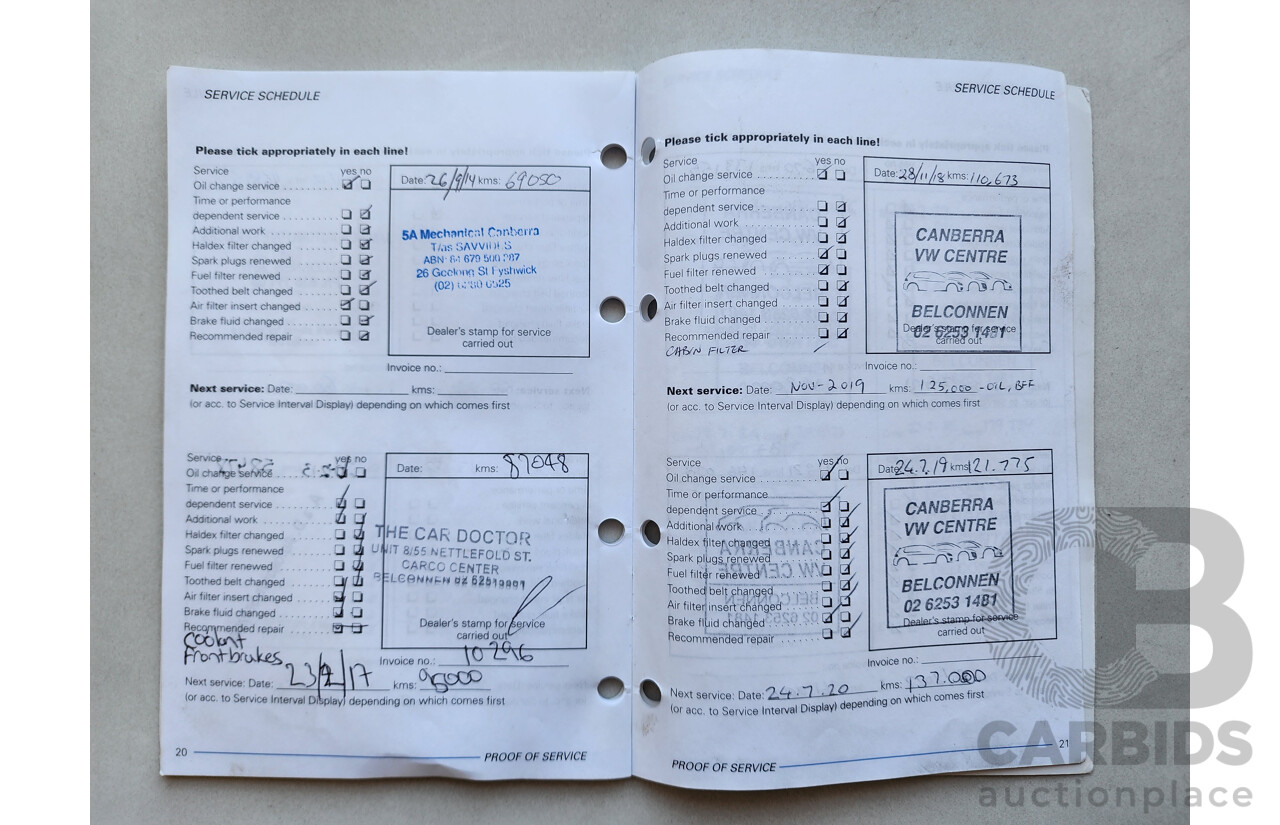 SERVICE SCHEDULE
Please tick appropriately in each line!
Service yes no
Oil change service
Time or performance
dependent service
Additional work
Haldex filter changed
Spark plugs renewed
Fuel filter renewed
Toothed belt changed
Air filter insert changed
Brake fluid changed
Recommended repair
Date: 26/9/14 kms: 69050
5A Mechanical Canberra
T/as SAVVIDES
ABN:
26 Geelong St Fyshwick
(02)
Dealer's stamp for service
carried out
Invoice no.:
Next service: Date: kms:
(or acc. to Service Interval Display) depending on which comes first
Service yes no
Oil change service
Time or performance
dependent service
Additional work
Haldex filter changed
Spark plugs renewed
Fuel filter renewed
Toothed belt changed
Air filter insert changed
Brake fluid changed
Recommended repair
Coolant
Front brakes
Date: kms: 87048
THE CAR DOCTOR
UNIT 8/55 NETTLEFOLD ST.
CARCO CENTER
BELCONNEN
Dealer's stamp for service
carried out
Invoice no.: 10296
Next service: Date: 23/2/17 kms:
(or acc. to Service Interval Display) depending on which comes first
20 PROOF OF SERVICE
SERVICE SCHEDULE
Please tick appropriately in each line!
Service yes no
Oil change service
Time or performance
dependent service
Additional work
Haldex filter changed
Spark plugs renewed
Fuel filter renewed
Toothed belt changed
Air filter insert changed
Brake fluid changed
Recommended repair
CABIN FILTER
Date: 28/11/18 kms: 110,673
CANBERRA
VW CENTRE
BELCONNEN
02 6253 1481
Dealer's stamp for service
carried out
Invoice no.:
Next service: Date: NOV-2019 kms: 125,000 -OIL, BFF
(or acc. to Service Interval Display) depending on which comes first
Service yes no
Oil change service
Time or performance
dependent service
Additional work
Haldex filter changed
Spark plugs renewed
Fuel filter renewed
Toothed belt changed
Air filter insert changed
Brake fluid changed
Recommended repair
Date: 24.7.19 kms: 121.775
CANBERRA
VW CENTRE
BELCONNEN
02 6253 1481
Dealer's stamp for service
carried out
Invoice no.:
Next service: Date: 24.7.20 kms: 137.000
(or acc. to Service Interval Display) depending on which comes first
PROOF OF SERVICE 21
CARBIDS
auctionplace